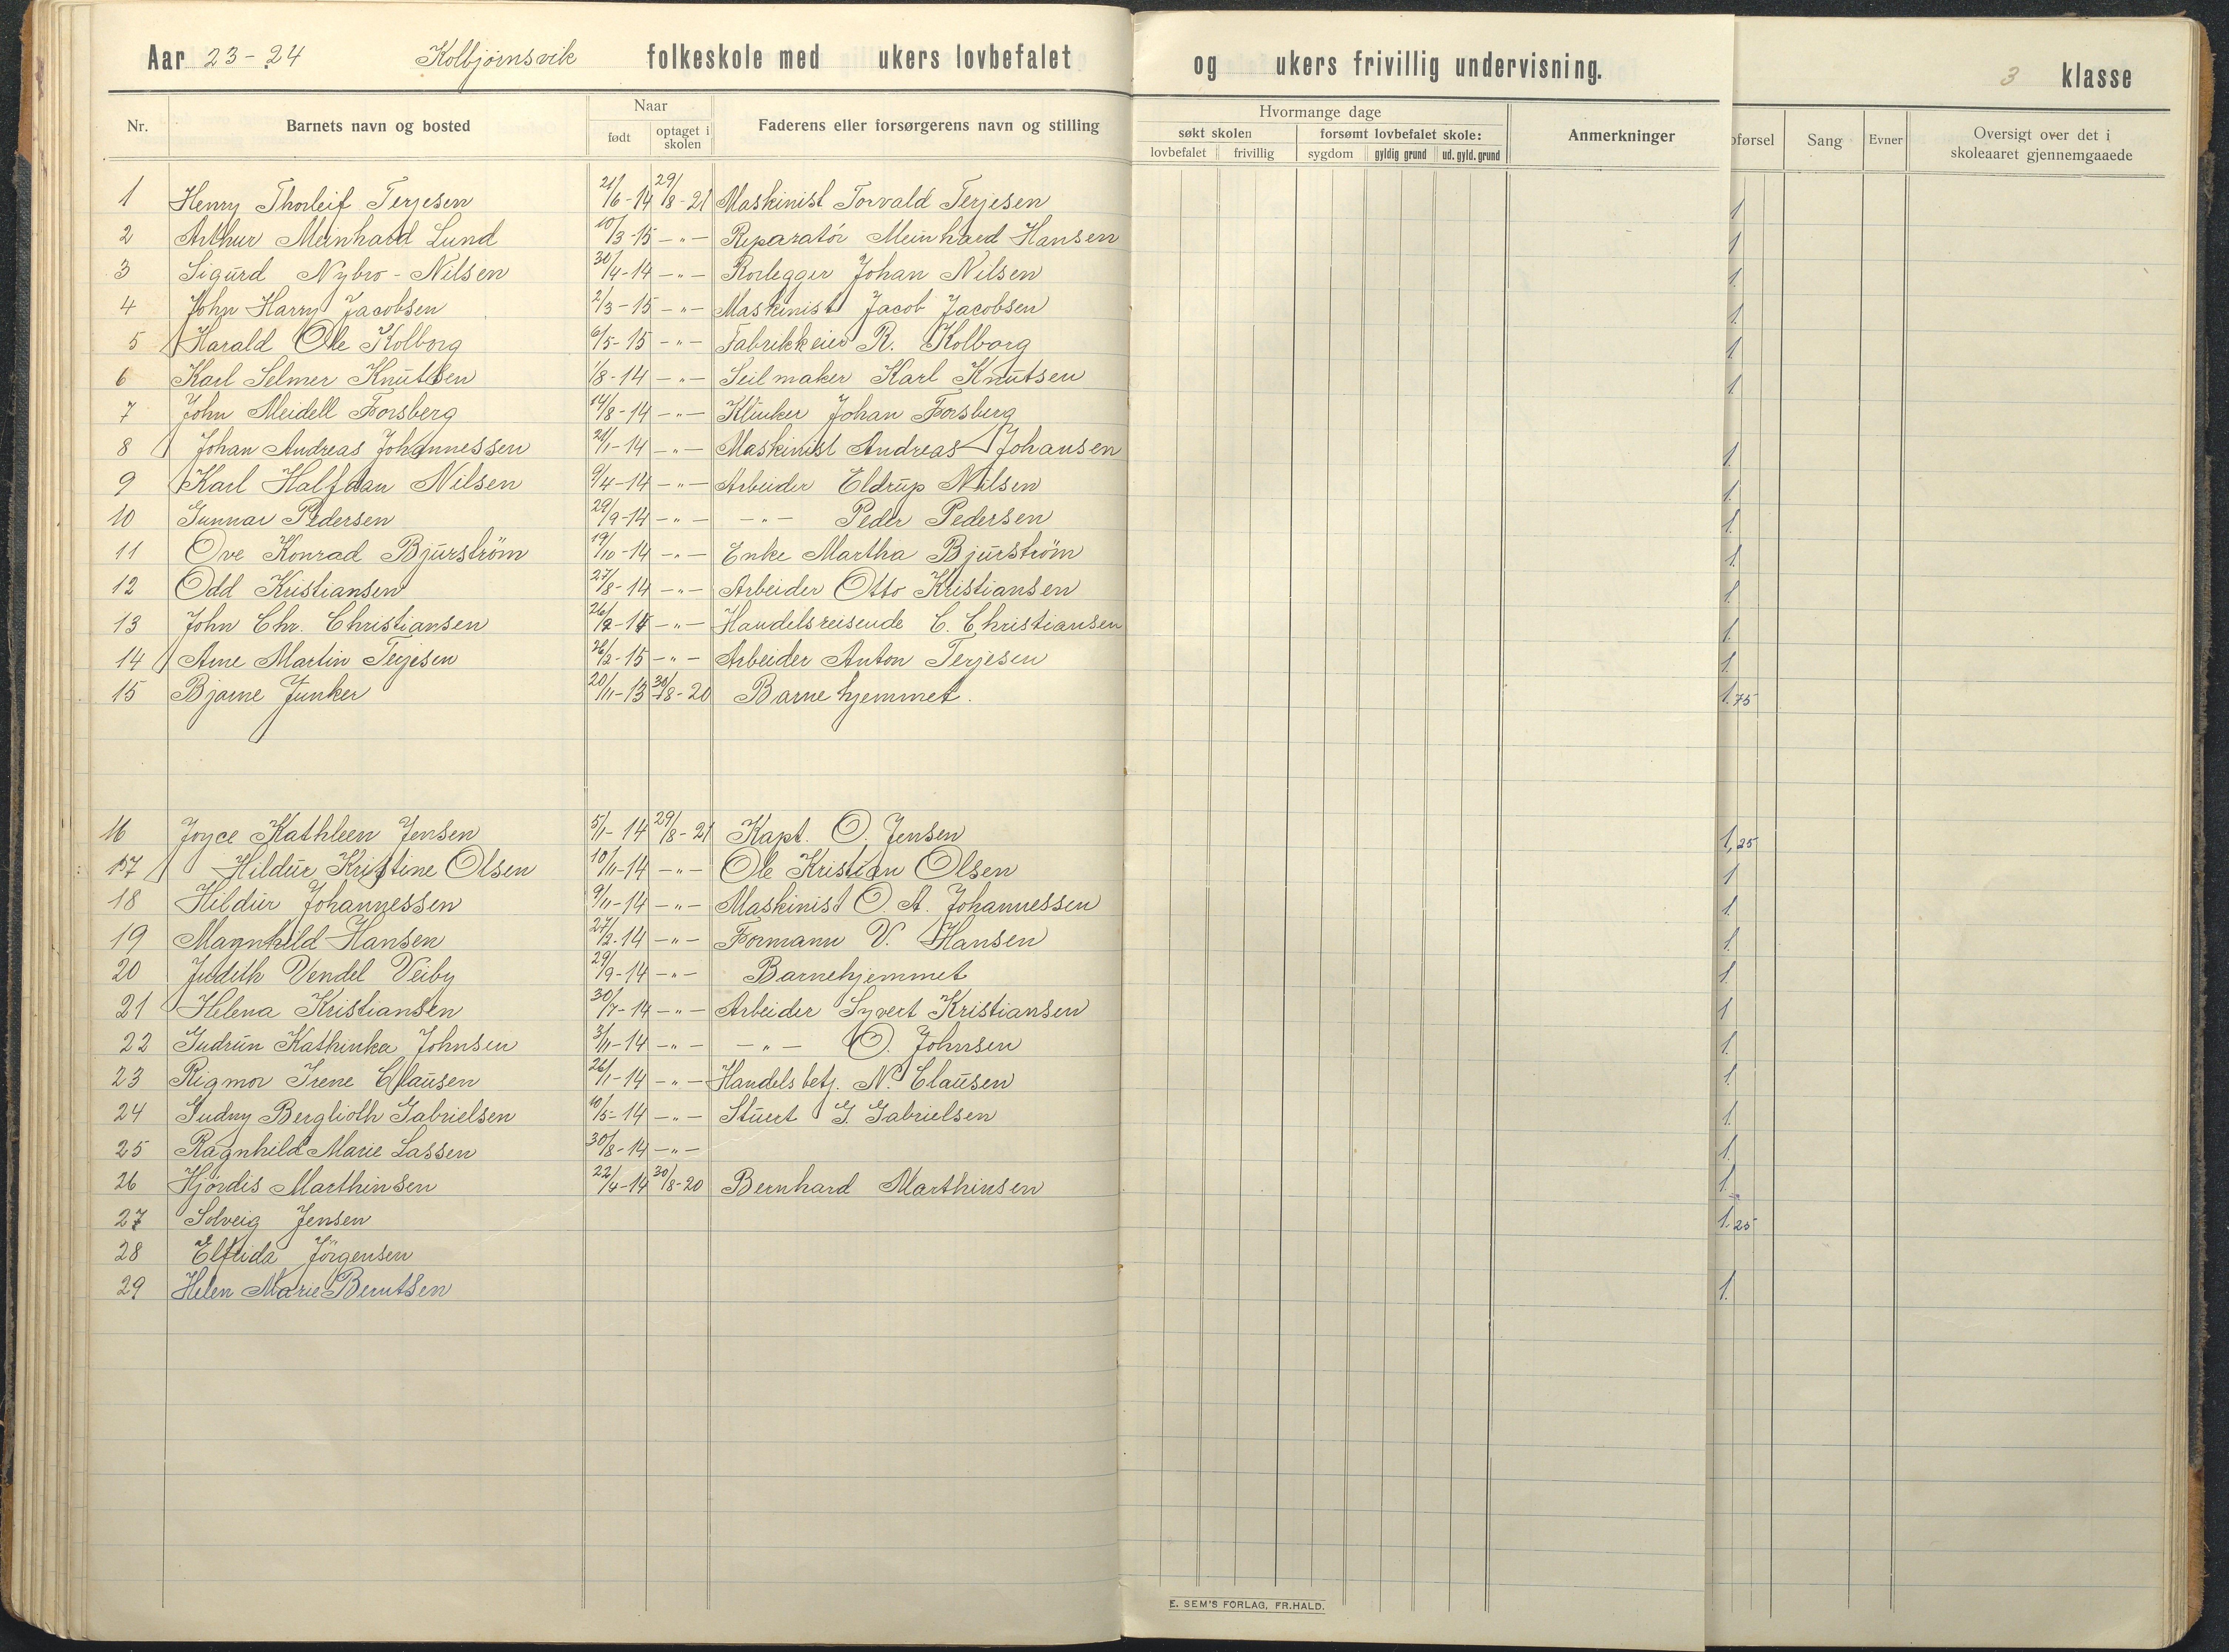 Aar 23-24 Kolbjørnsvik folkeskole med ukers lovbefalet og ukers frivillig undervisning. 3 klasse
Nr. Barnets navn og bosted Naar født optaget i skolen Faderens eller forsørgerens navn og stilling Hvormange dage søkt skolen lovbefalet frivillig forsømt lovbefalet skole: sygdom gyldig grund ud. gyld. grund Anmerkninger pførsel Sang Evner Oversigt over det i skoleaaret gjennemgaaede
1 Henry Thorleif Terjesen 21/6-14 29/8-21 Maskinist Torvald Terjesen 1
2 Arthur Meinhard Lund 10/3-15 -"- Reparatör Meinhard Hansen 1
3 Sigurd Nybro-Nilsen 30/4-14 -"- Rørlegger Johan Nilsen 1.
4 John Harry Jacobsen 2/3-15 -"- Maskinist Jacob Jacobsen 1.
5 Harald Ole Kolborg 6/5-15 -"- Fabrikkeier R. Kolborg 1
6 Karl Selmer Knutsen 1/8-14 -"- Seilmaker Karl Knutsen 1
7 John Meidell Forsberg 14/8-14 -"- Klinker Johan Forsberg
8 Johan Andreas Johannessen 21/1-14 -"- Maskinist Andreas Johansen 1.
9 Karl Halfdan Nilsen 9/4-14 -"- Arbeider Eldrup Nilsen 1.
10 Gunnar Pedersen 29/9-14 -"- -"- Peder Pedersen 1.
11 Ove Konrad Bjurström 19/10-14 -"- Enke Martha Bjurström 1.
12 Odd Kristiansen 27/8-14 -"- Arbeider Otto Kristiansen 1.
13 John Chr. Christiansen 26/2-14 -"- Handelsreisende C. Christiansen 1.
14 Arne Martin Terjesen 26/2-15 -"- Arbeider Anton Terjesen 1.
15 Bjarne Junker 20/11-13 30/8-20 Barnehjemmet. 1.75
16 Joyce Kathleen Jensen 5/1-14 29/8-21 Kapt. O. Jensen 1,25
17 Hildur Kristine Olsen 10/11-14 -"- Ole Kristian Olsen 1
18 Hildur Johannessen 9/11-14 -"- Maskinist O. A. Johannessen 1.
19 Magnhild Hansen 27/2-14 -"- Formann V. Hansen 1.
20 Judith Vendel Veiby 29/9-14 -"- Barnehjemmet 1.
21 Helena Kristiansen 30/7-14 -"- Arbeider Syvert Kristiansen 1
22 Gudrun Kathinka Johnsen 3/11-14 -"- -"- O. Johnsen 1.
23 Rigmor Irene Clausen 26/1-14 -"- Handelsbetj. N. Clausen 1.
24 Gudny Berglioth Gabrielsen 10/5-14 -"- Stuert G. Gabrielsen 1.
25 Ragnhild Marie Lassen 30/8-14 -"- 1.
26 Hjørdis Marthinsen 22/4-14 30/8-20 Bernhard Marthinsen 1.
27 Solveig Jensen 1.25
28 Elfrida Jörgensen
29 Helen Marie Berntsen 1.
E. SEM'S FORLAG, FR.HALD.